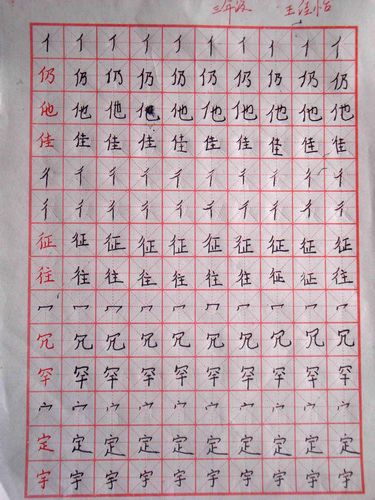 三年级 王佳怡
亻亻亻亻亻亻亻亻亻亻
仍仍仍仍仍仍仍仍仍仍
他他他他他他他他他他
佳佳佳佳佳佳佳佳佳佳
彳彳彳彳彳彳彳彳彳彳
彳彳彳彳彳彳彳彳彳彳
征征征征征征征征征征
往往往往往往往往往往
冖冖冖冖冖冖冖冖冖冖
冗冗冗冗冗冗冗冗冗冗
罕罕罕罕罕罕罕罕罕罕
宀宀宀宀宀宀宀宀宀宀
定定定定定定定定定定
宇宇宇宇宇宇宇宇宇宇